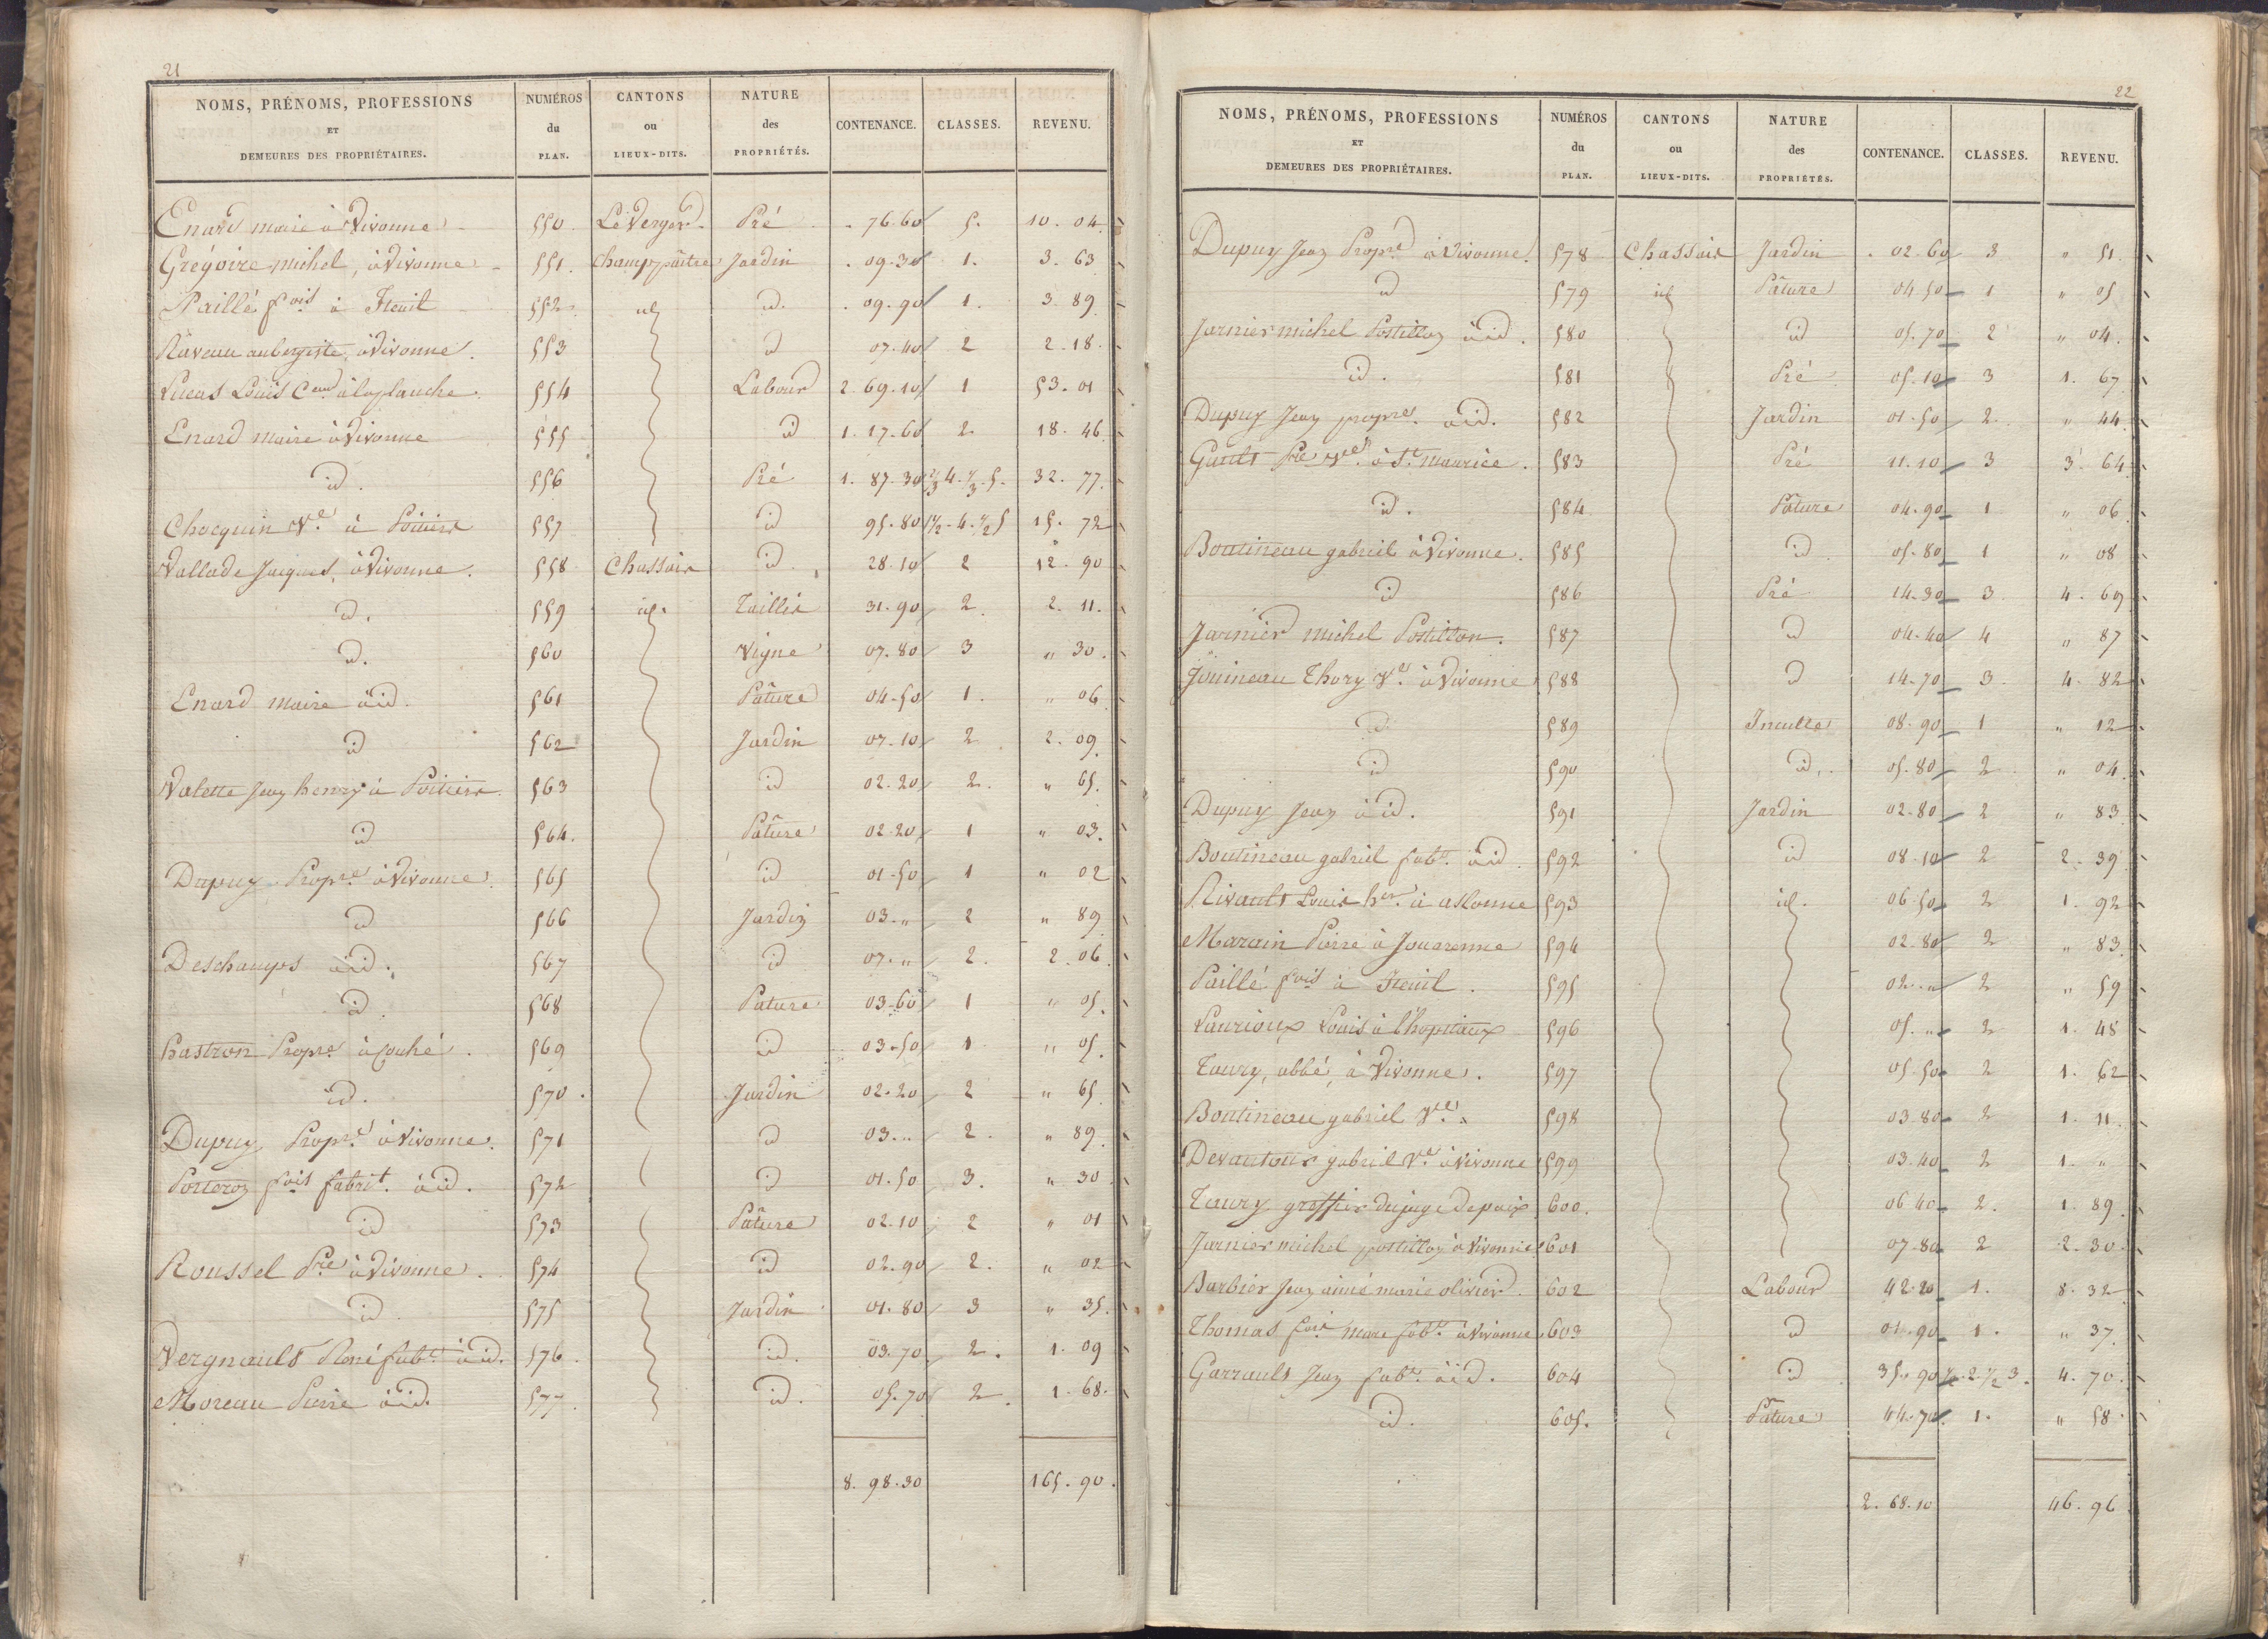 21
NOMS, PRÉNOMS, PROFESSIONS ET DEMEURES DES PROPRIÉTAIRES. NUMÉROS du PLAN. CANTONS ou LIEUX-DITS. NATURE des PROPRIÉTÉS. CONTENANCE. CLASSES. REVENU.
Enard maire à Vivonne 550 Le Verger Pré 76.60 5. 10.04
Grégoire michel, à Vivonne 551. Champ 09.30 Jardin 1. 3.63
Paillé fois à Iteuil 552 id id. 09.90 1. 3.89
Raveau aubergiste, à Vivonne. 553 id 07.40 2 2.18
Lucas Louis à la planche. 554 Labour 2.69.10 1 53.01
Enard maire à Vivonne 555 id 1.17.60 2. 18.46
id. 556 Pré 1.87.30 2/3 4. 1/3 5. 32.77.
Chocquin Ve. à Poitiers 557 id 95.80 1/2-4-1/2 5 15.72
Vallade Jacques, à Vivonne. 558 Chassaix id. 28.10 2 12.90
id. 559 id. Taillis 31.90 2. 2.11.
id. 560 Vigne 07.80 3 " 30.
Enard maire à id. 561 Pâture 04.50 1. " 06
id 562 Jardin 07.10 2 2.09.
Valette Jean henry à Poitiers. 563 id 02.20 2. " 65.
id 564. Pâture 02.20 1 " 03.
Dupuy Propre à Vivonne. 565 id 01.50 1 " 02
id 566 Jardin 03." 2 " 89
Deschamps à id. 567 id 07." 2. 2.06
id. 568 Pature 03.60 1 " 05.
hastron Propre à Couhé. 569 id 03.50 1 " 05.
id. 570. Jardin 02.20 2 " 65
Dupuy Propre à Vivonne. 571 id 03." 2. " 89.
Porteron fois fabrit. à id. 572 id 01.50 3. " 30
id 573 Pâture 02.10 2 " 01
Roussel Pre à Vivonne. 574 id 02.90 2. " 02
id. 575 Jardin 01.80 3 " 35.
Vergnault René fabt. à id. 576. id. 03.70 2. 1.09
Moreau Pierre à id. 577. id. 05.70 2. 1.68.
8.98.30 165.90.
22
NOMS, PRÉNOMS, PROFESSIONS ET DEMEURES DES PROPRIÉTAIRES. NUMÉROS du PLAN. CANTONS ou LIEUX-DITS. NATURE des PROPRIÉTÉS. CONTENANCE. CLASSES. REVENU.
Dupuy Jean Propre à Vivonne. 578 Chassaix Jardin 02.60 3 " 51.
id 579 id Pâture 04.50 1 " 05
Jarnier michel Postillon à id. 580 id 05.70 2 " 04.
id. 581 Pré 05.10 3 1.67
Dupuy Jean propre. à id. 582 Jardin 01.50 2. " 44
Gault Pre Ve à St maurice. 583 Pré 11.10 3 3.64
id. 584 Pâture 04.90 1 " 06
Boutineau gabriel à Vivonne. 585 id 05.80 1 " 08
id 586 Pré 14.30 3. 4.69
Jarnier michel Postillon. 587 id 04.40 4 " 87
Jouineau Thory Ve à Vivonne 588 id 14.70 3. 4.82
id 589 Inculte 08.90 1 " 12
id 590 id. 05.80 2. " 04.
Dupuy Jean à id. 591 Jardin 02.80 2 " 83
Boutineau gabriel fabt. à id. 592 id 08.10 2 2.39
Rivault Louis her. à aslonne 593 id. 06.50 2 1.92
Marain Pierre à Jouarenne 594 02.80 2 " 83
Paillé fois à Iteuil. 595 02." 2 " 59
Laurioux Louis à l'hopitaux 596 05." 2 1.48
Taury, abbé, à Vivonne. 597 05.50 2 1.62
Boutineau gabriel Ve. 598 03.80 2 1.11.
Devautour gabriel Ve à Vivonne 599 03.40 2 1."
Taury greffier du juge de paix. 600. 06.40 2. 1.89.
Jarnier michel postillon à Vivonne 601 07.80 2 2.30.
Barbier Jean aimé marie olivier. 602 Labour 42.20 1. 8.32
Thomas fois marc fabt. à Vivonne 603 id 01.90 1. " 37.
Garrault Jean fabt. à id. 604 id 35.90 1/2.2 1/2 3. 4.70.
id. 605. Pâture 44.70 1. " 58.
2.68.10 46.96